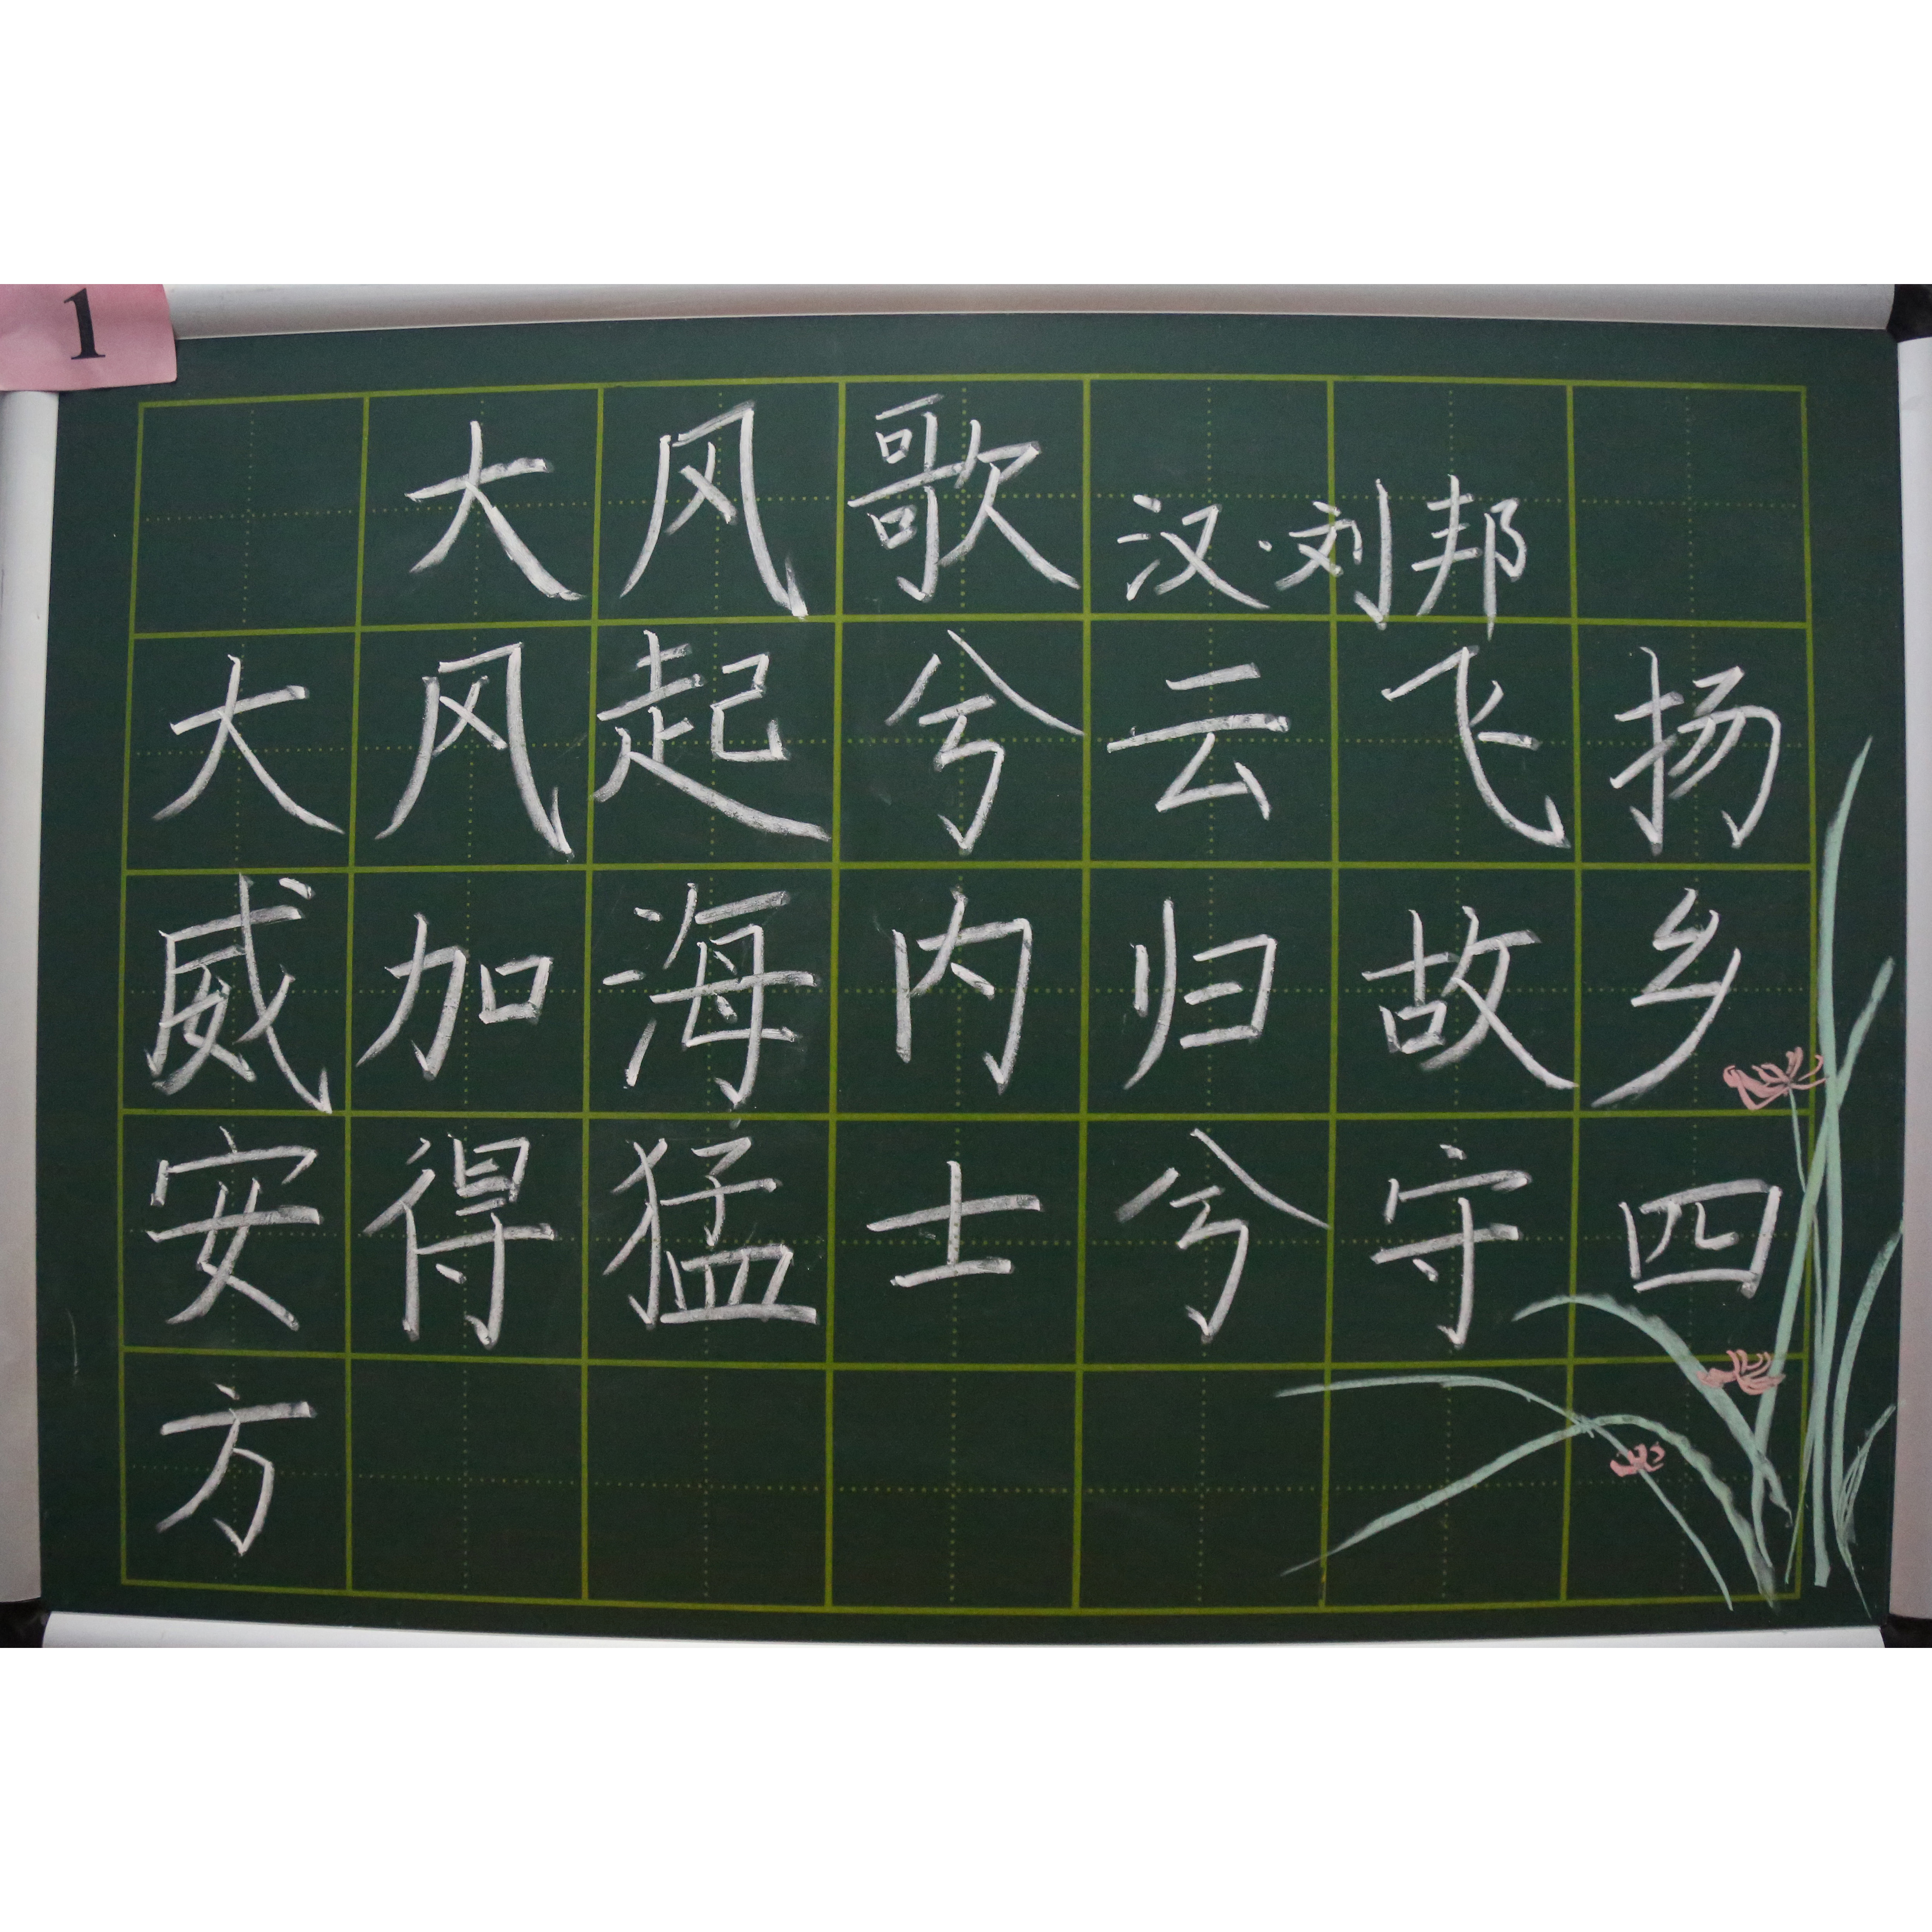 1
大风歌 汉·刘邦
大风起兮云飞扬
威加海内归故乡
安得猛士兮守四
方